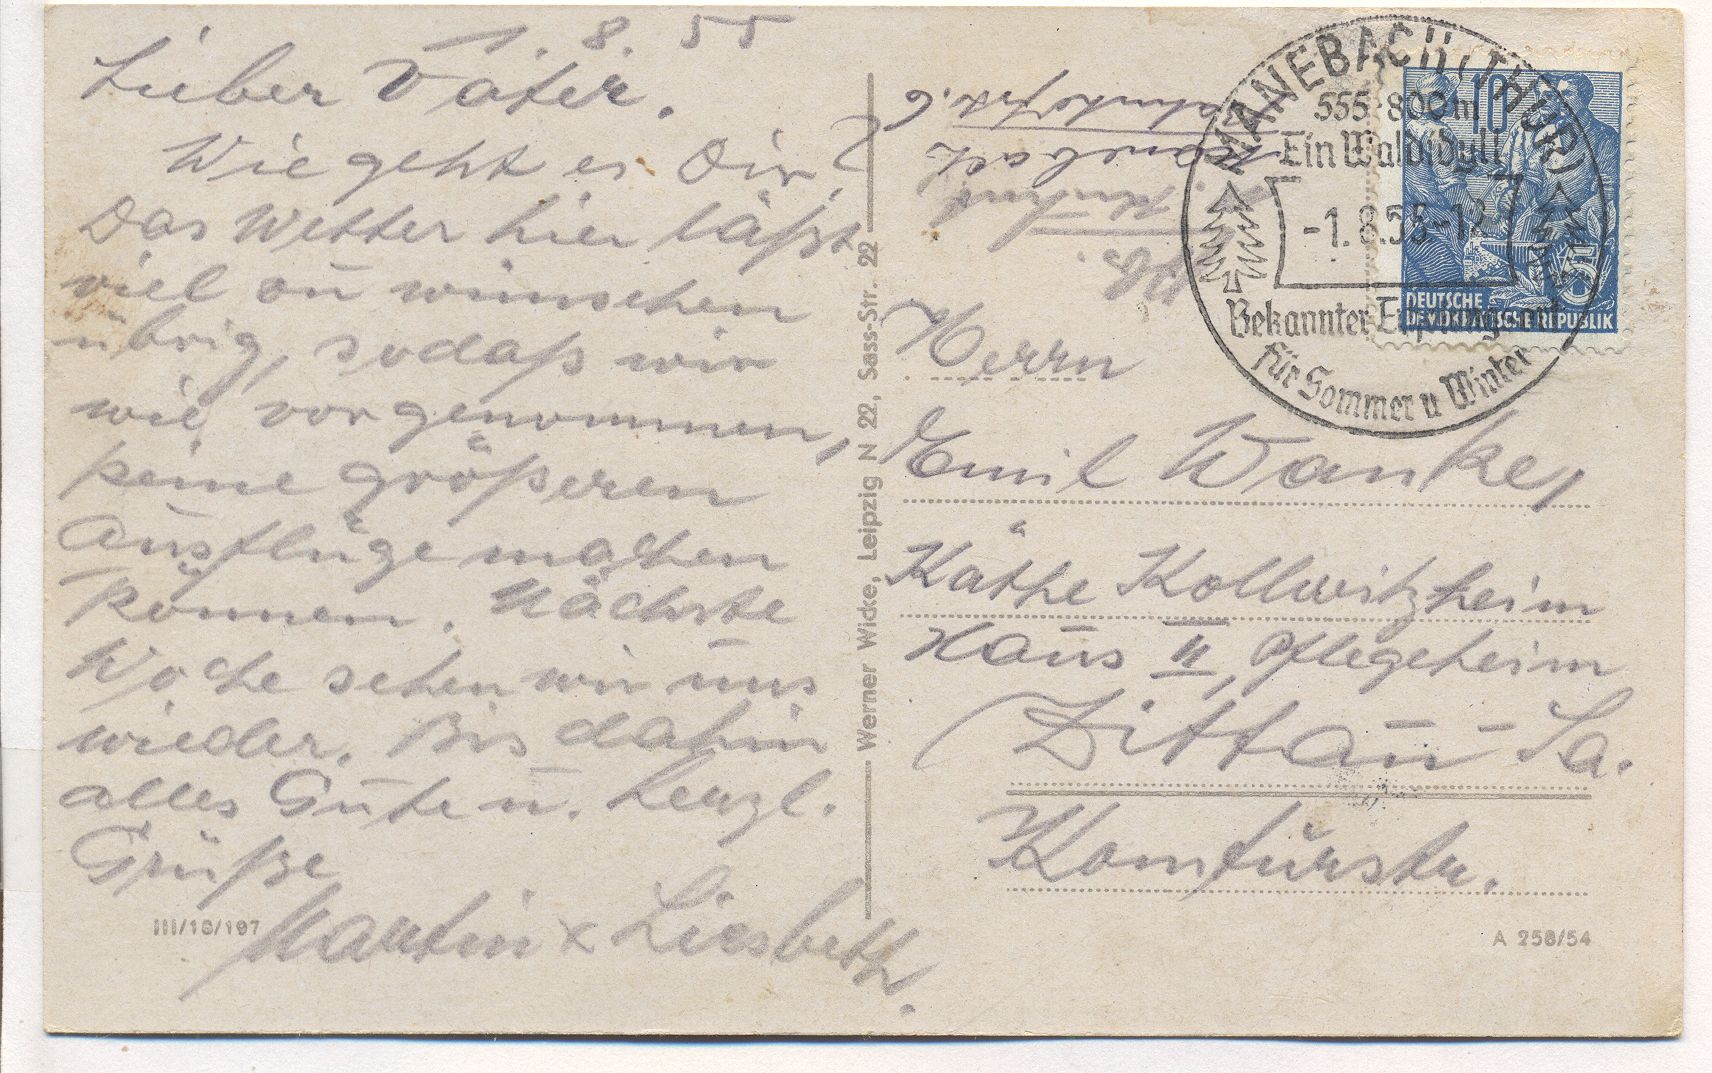 1. 8. 55
Lieber Vater.
Wie geht es Dir?
Das Wetter hier läßt
viel zu wünschen
übrig, sodaß wir
wie vorgenommen,
keine größeren
Ausflüge machen
können. Nächste
Woche sehen wir uns
wieder. Bis dahin
alles Gute u. herzl.
Grüße
Martin & Liesbeth.
III/18/197
Werner Wicke, Leipzig N 22, Sass-Str. 22
Manebach
MANEBACH (THÜR)
555-800m
Ein Waldidyll
-1.8.55-12
Bekannter
für Sommer u Winter
10
5
DEUTSCHE
DEMOKRATISCHE REPUBLIK
Herrn
Emil Wanke,
Käthe Kollwitzheim
Haus II, Pflegeheim
(Zittau - Sa.
Komturstr.
A 258/54